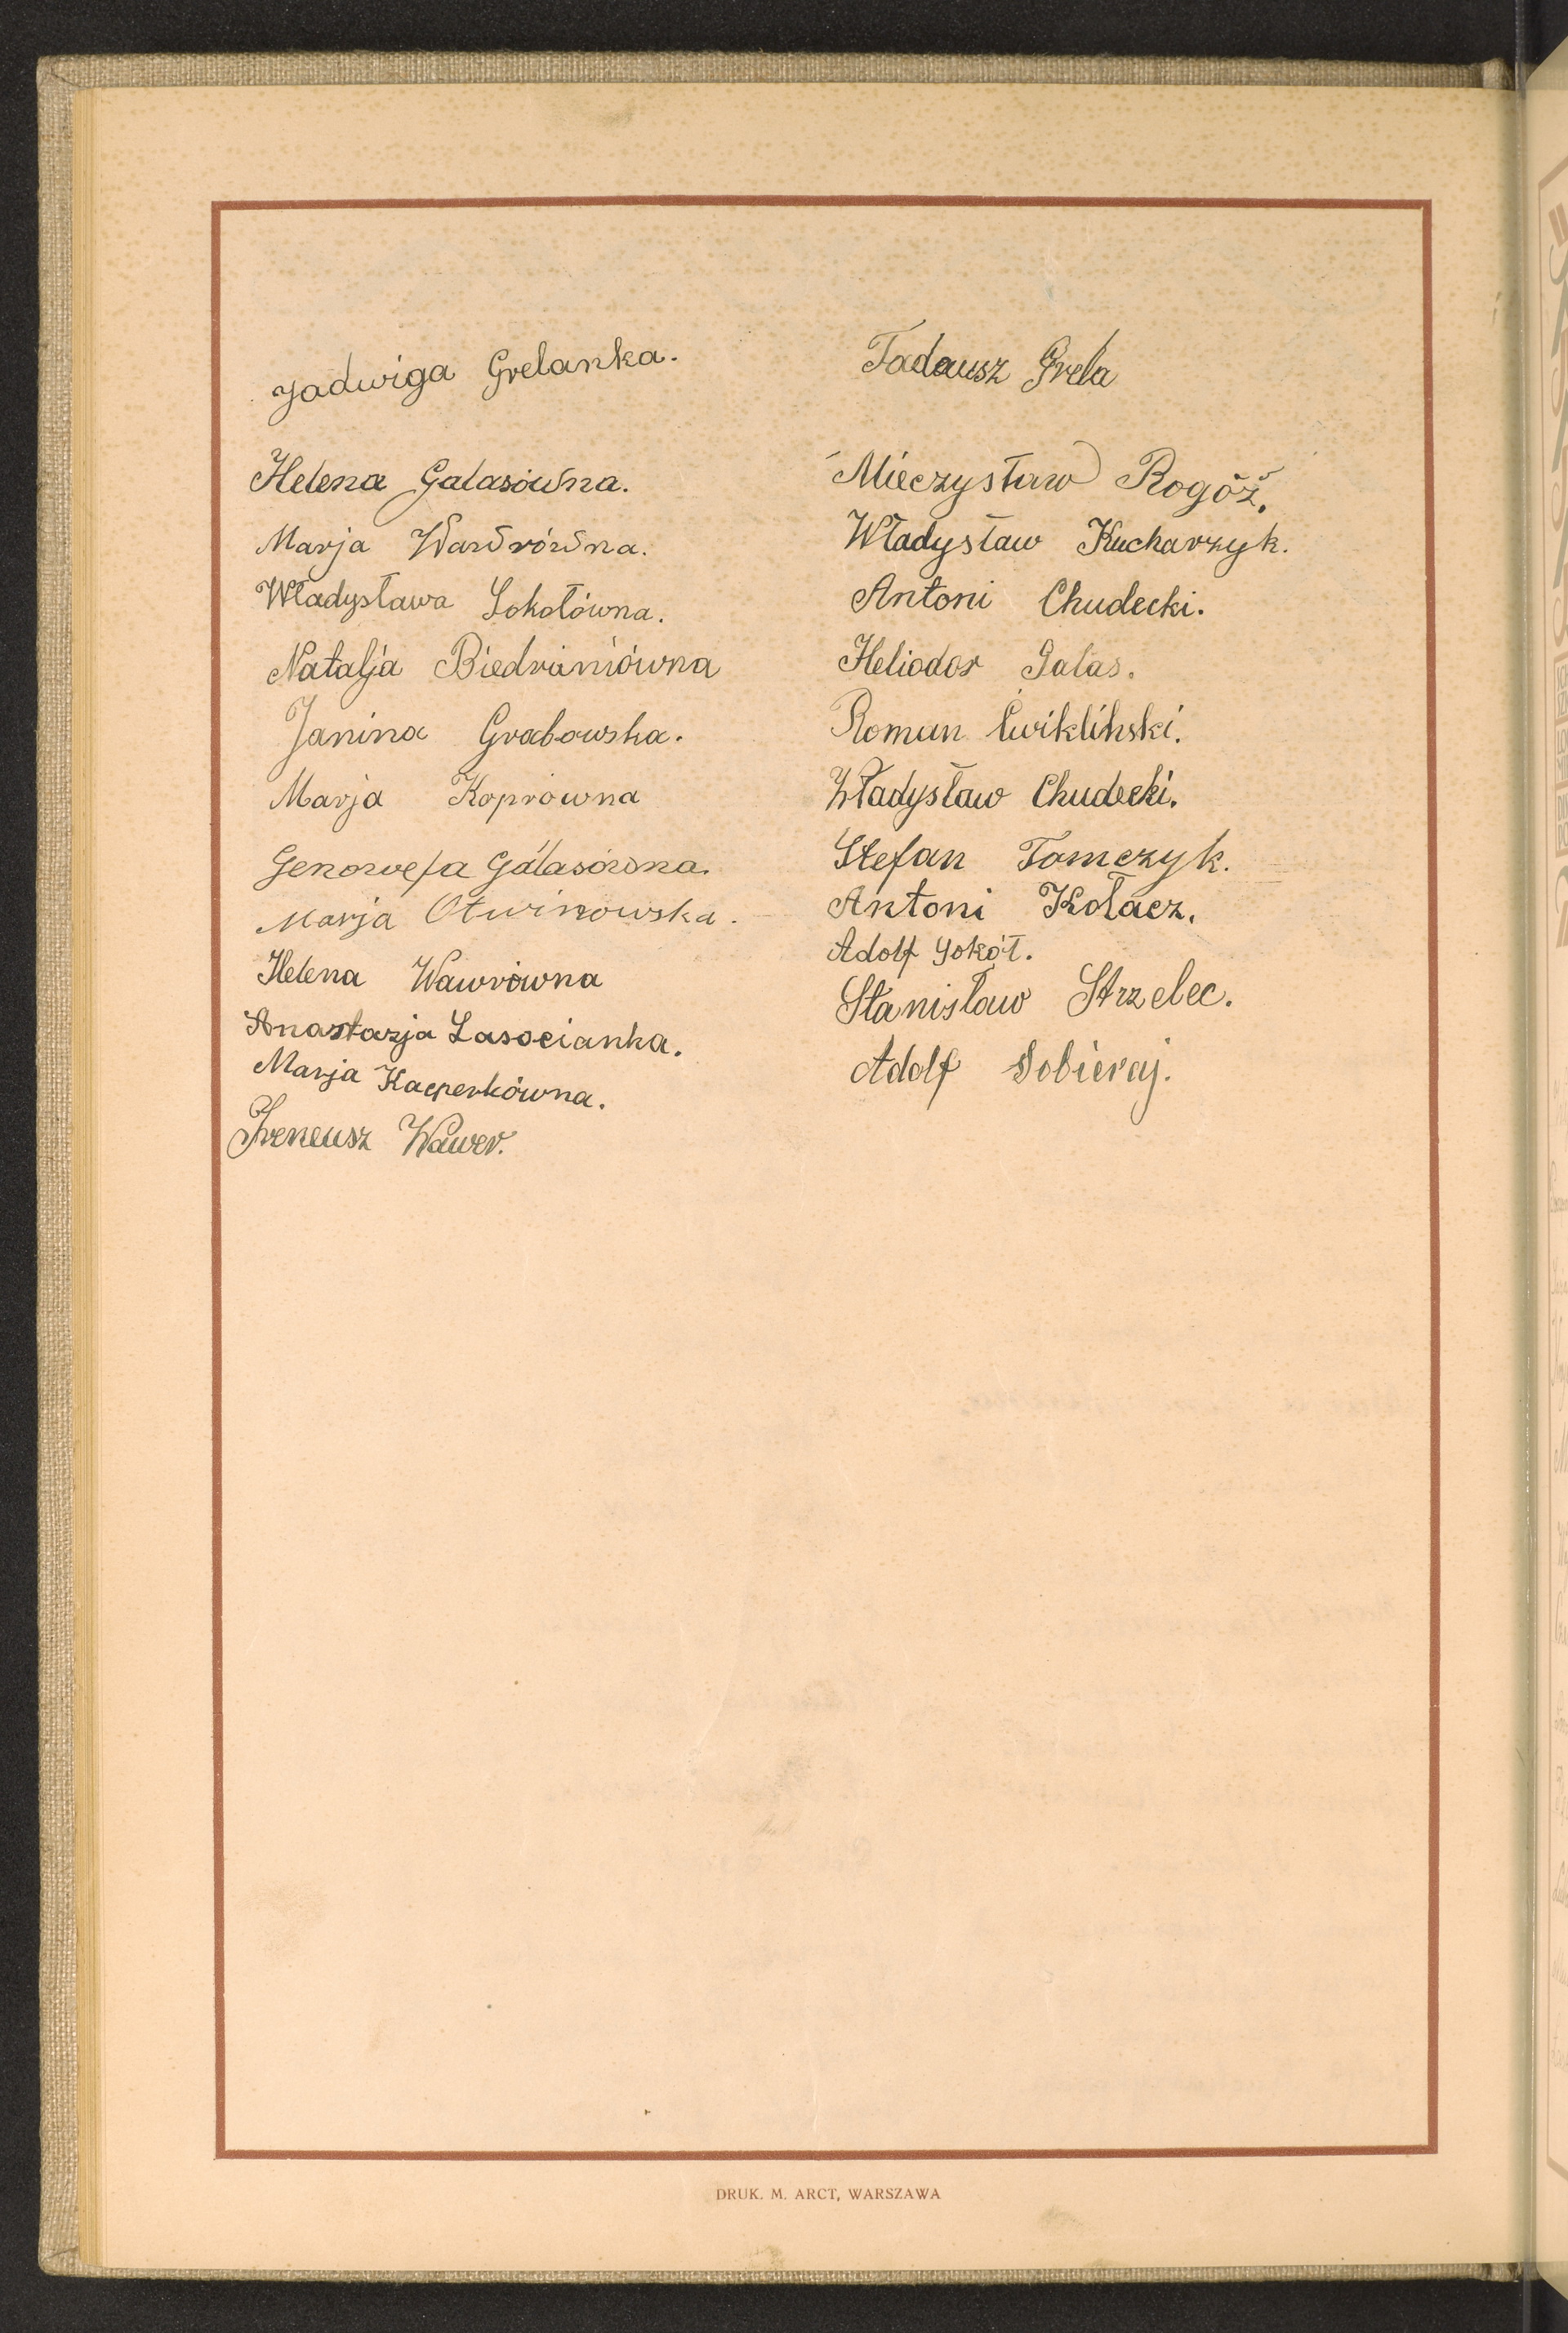 Jadwiga Grelanka.
Helena Galasówna.
Marja Wawrówna.
Władysława Sokołówna.
Natalja Biedroniówna
Janina Grabowska.
Marja Koprowna
Genowefa Galasówna.
Marja Otwinowska.
Helena Wawrówna
Anastazja Lasocianka.
Marja Kacperkówna.
Ireneusz Wawer.
Tadeusz Grela
Mieczysław Rogóż.
Władysław Kucharzyk.
Antoni Chudecki.
Heliodor Galas.
Roman Ćwikliński.
Władysław Chudecki.
Stefan Tomczyk.
Antoni Kołacz.
Adolf Sokół.
Stanisław Strzelec.
Adolf Sobieraj.
DRUK. M. ARCT, WARSZAWA